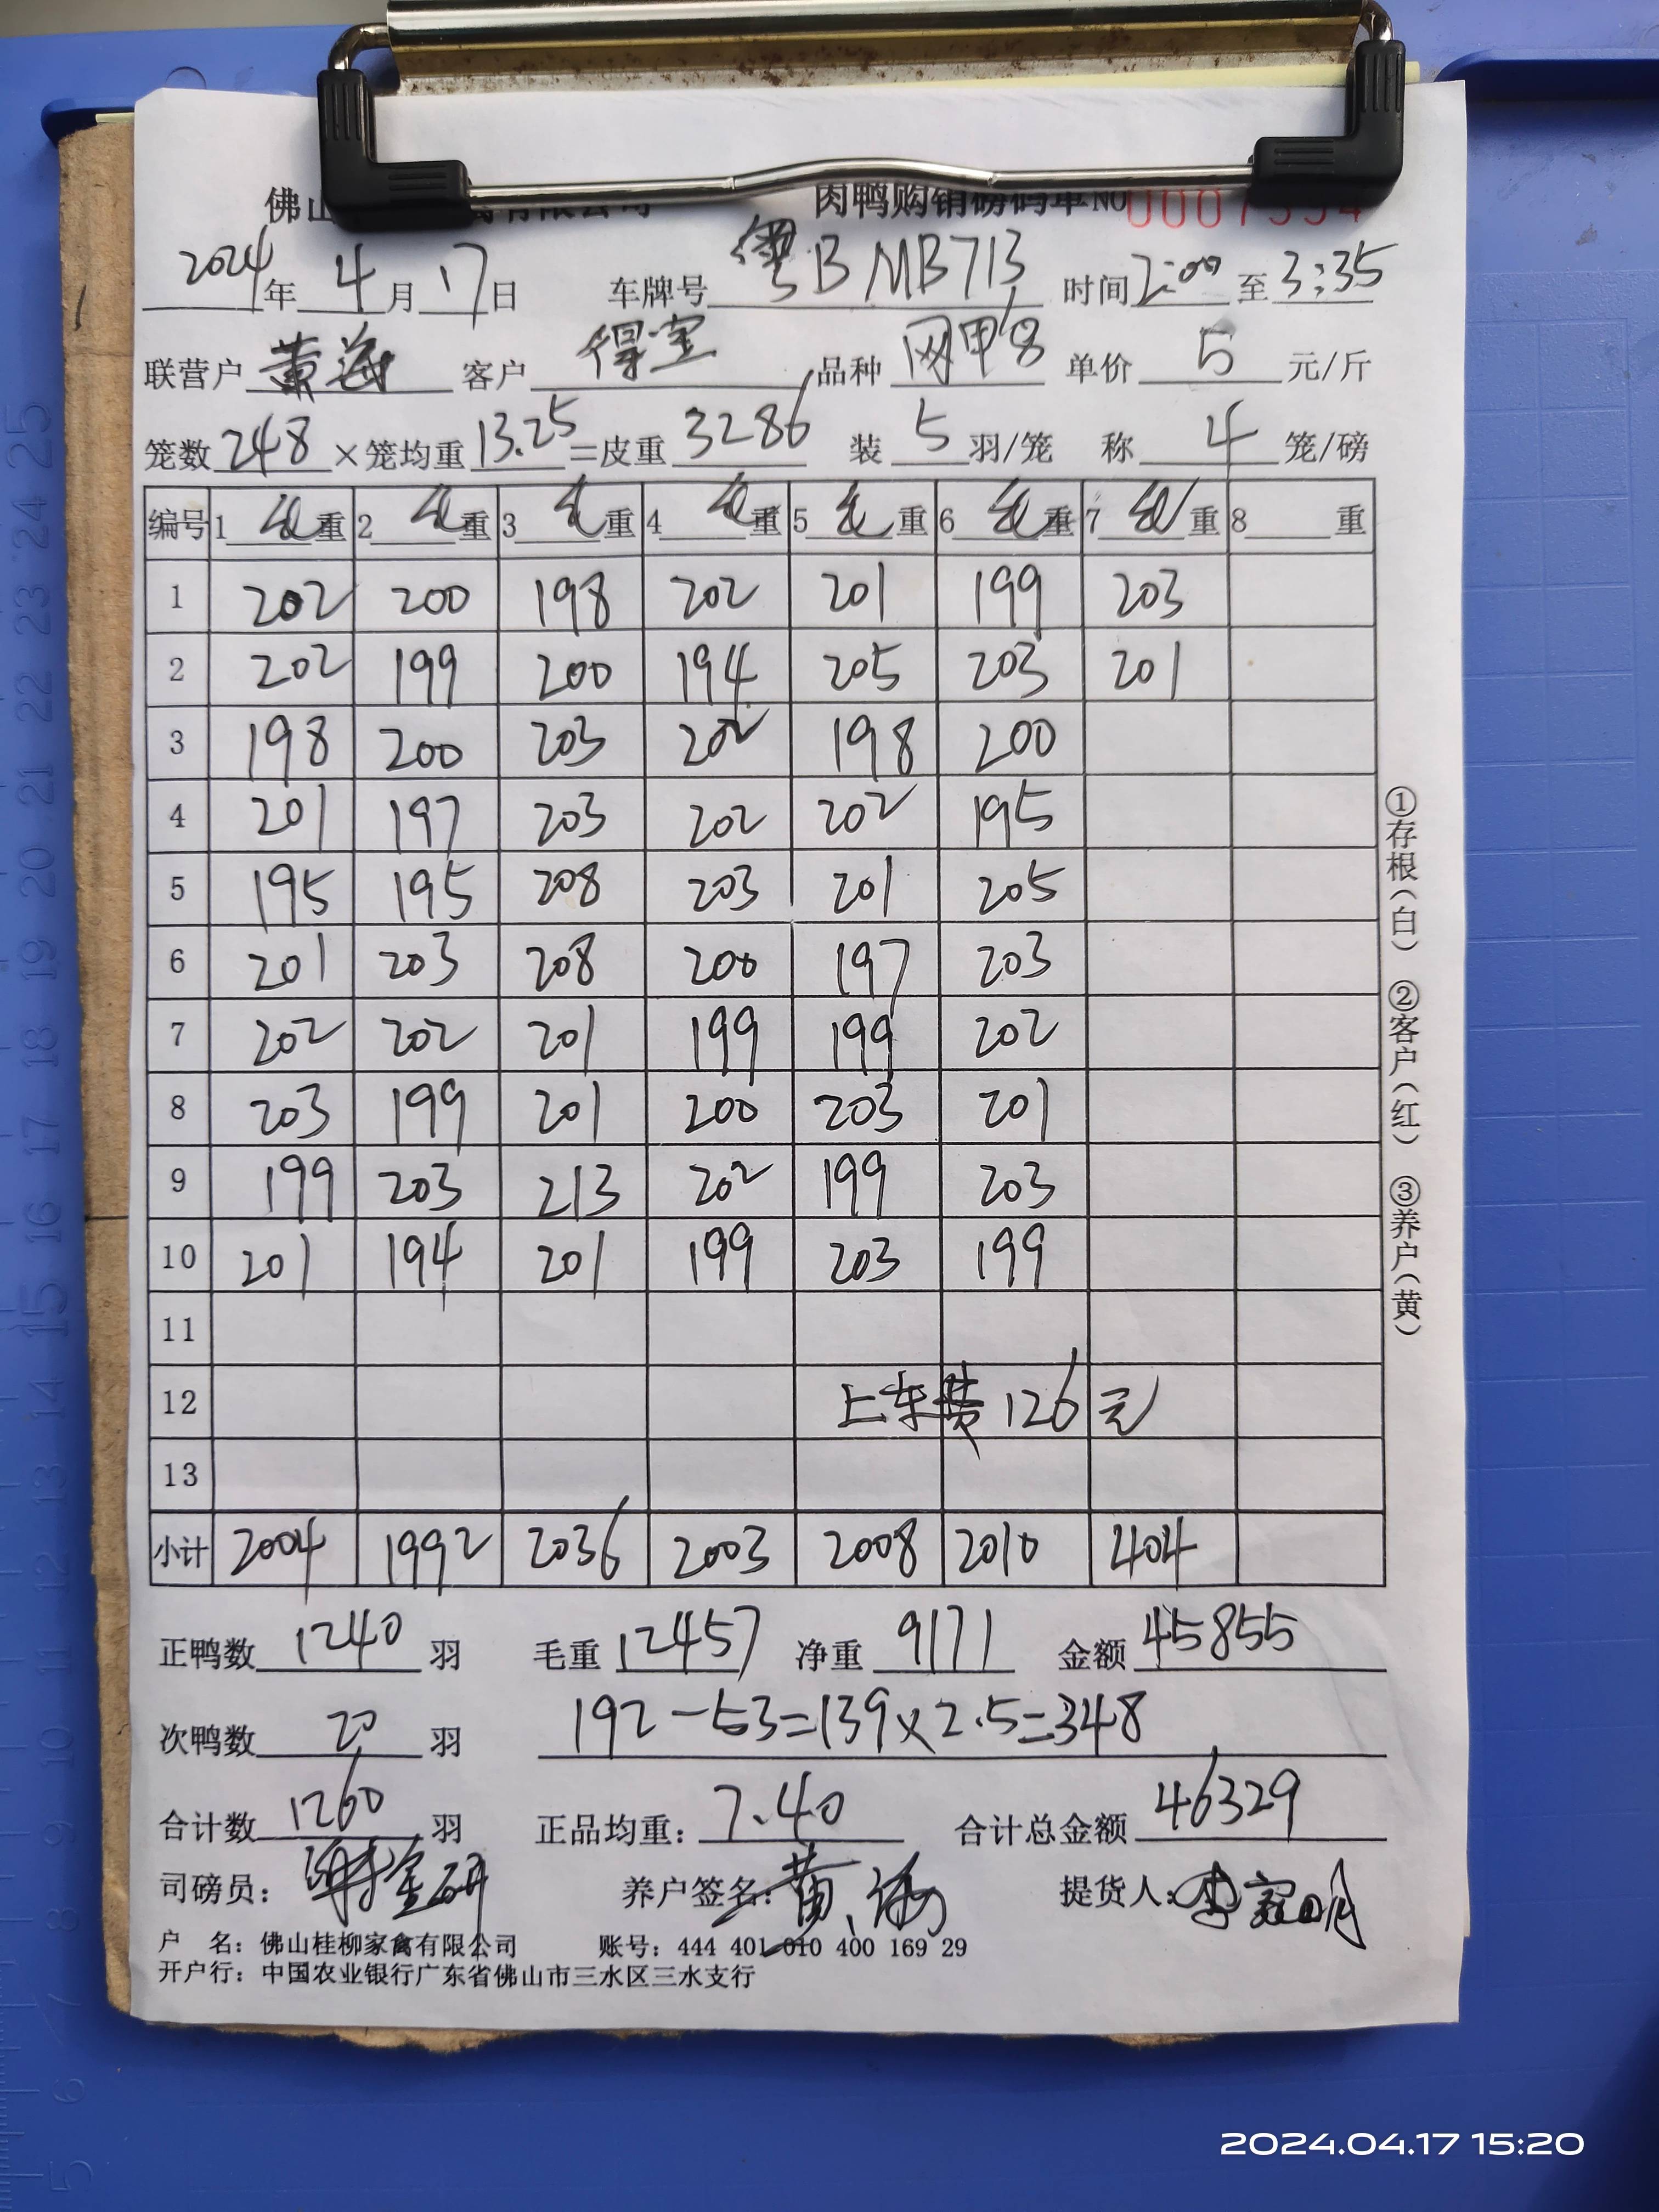 佛山 有限公司 肉鸭购销磅码单 NO 000
2024年 4月 17日 车牌号 粤B MB713 时间 2:00 至 3:35
联营户 黄海 客户 得宝 品种 单价 5 元/斤
笼数 248 ×笼均重 13.25 =皮重 3286 装 5 羽/笼 称 4 笼/磅
编号 1 毛重 2 毛重 3 毛重 4 毛重 5 毛重 6 毛重 7 毛重 8 重
1 202 200 198 202 201 199 203
2 202 199 200 194 205 203 201
3 198 200 203 202 198 200
4 201 197 203 202 202 195
5 195 195 208 203 201 205
6 201 203 208 200 197 203
7 202 202 201 199 199 202
8 203 199 201 200 203 201
9 199 203 213 202 199 203
10 201 194 201 199 203 199
11
12 上车费 126元
13
小计 2004 1992 2036 2003 2008 2010 404
①存根(白) ②客户(红) ③养户(黄)
正鸭数 1240 羽 毛重 12457 净重 9171 金额 45855
次鸭数 20 羽 192-53=139×2.5=348
合计数 1260 羽 正品均重: 7.40 合计总金额 46329
司磅员: 养户签名: 黄海 提货人:
户 名: 佛山桂柳家禽有限公司 账号: 444 401 010 400 169 29
开户行: 中国农业银行广东省佛山市三水区三水支行
2024.04.17 15:20